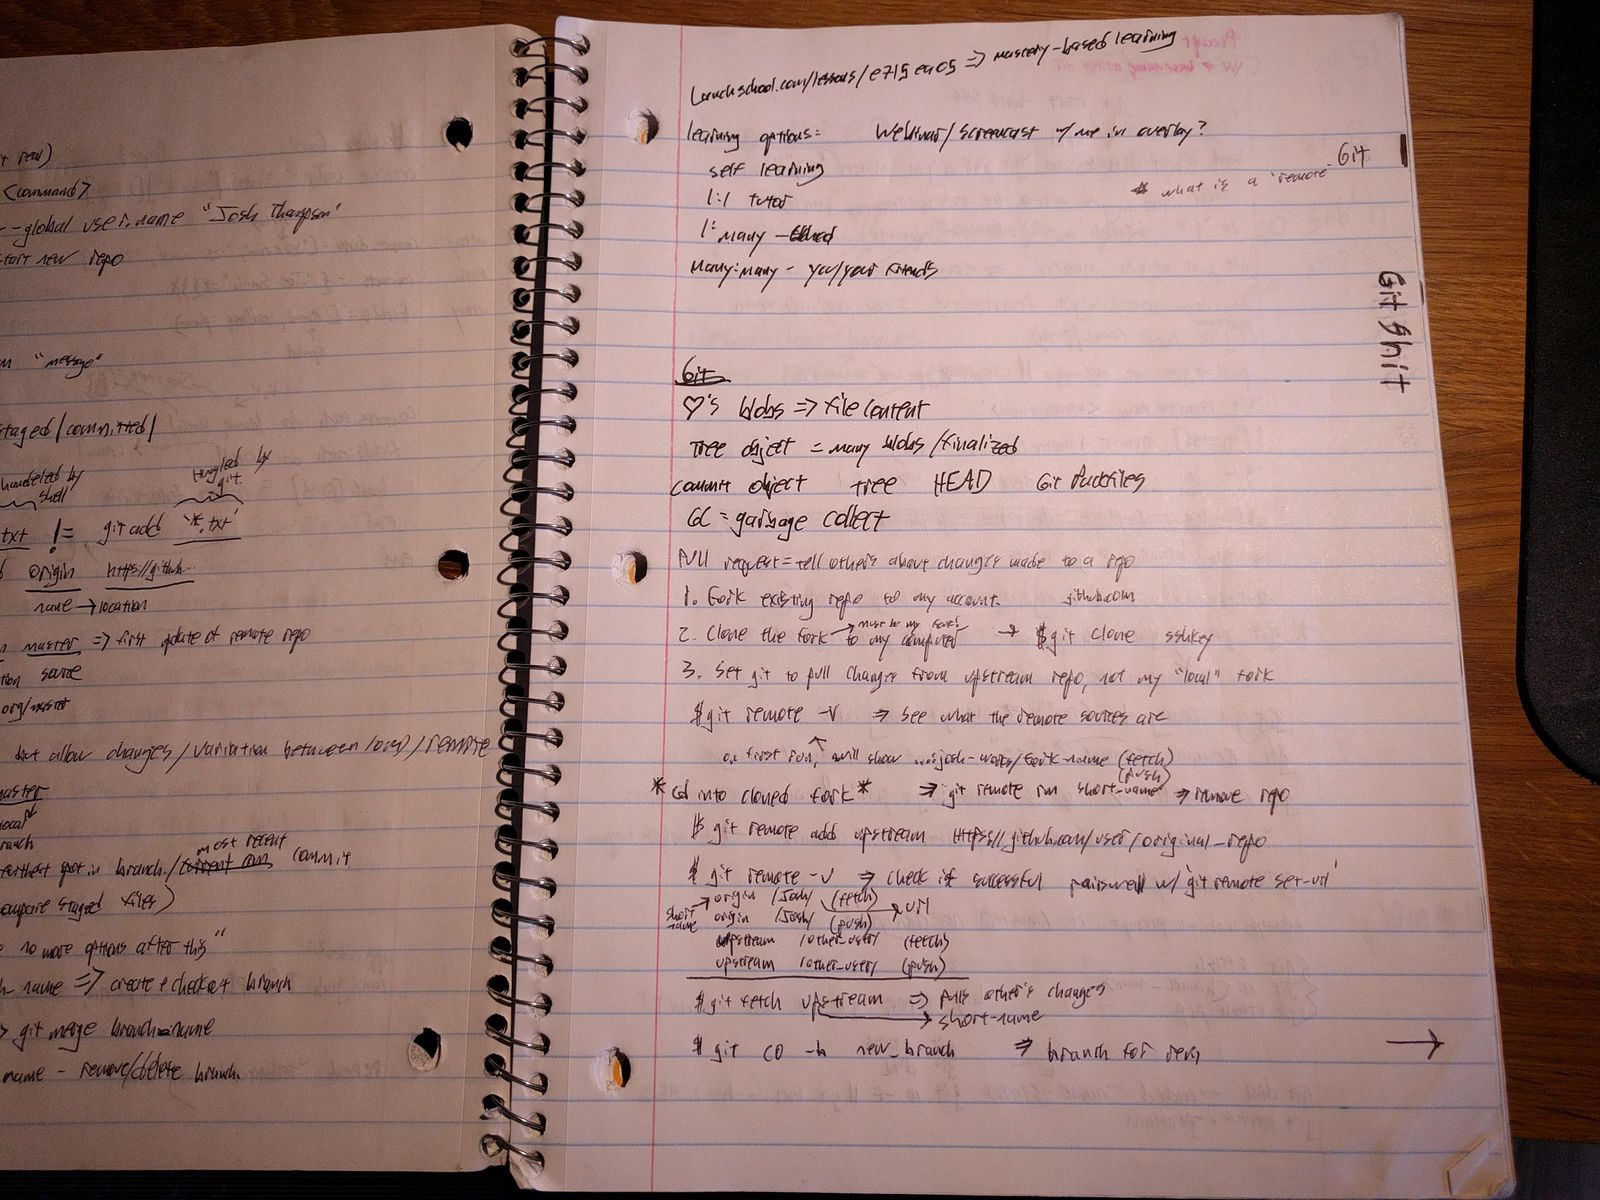 + real)
<command>
--global user.name "Josh Thompson"
start new repo
m "message"
staged/committed/
handeled by shell
Hangled by git
txt != git add '*.txt'
origin https://github...
name → location
master => first update of remote repo
source
org/master
but allow changes/variation between local/remote
master
local
branch
furthest spot in branch/current com most recent commit
compare staged files)
no more options after this"
name => create & checkout branch
> git merge branch-name
name - remove/delete branch.
Launchschool.com/lessons/e715ea05 => mastery-based learning
learning options: Webinar/screencast w/ me in overlay?
self learning
1:1 tutor
1:many -
Many:many - you/your friends
Git
* what is a 'remote'
Git Shit
Git
♡'s blobs => file content
Tree object = many blobs/finalized
commit object tree HEAD Git Packfiles
GC = garbage collect
Pull request = tell others about changes made to a repo
1. Fork existing repo to my account. github.com
2. Clone the fork → must be my fork! to my computer → $ git clone sshkey
3. Set git to pull changes from upstream repo, not my "local" fork
$ git remote -v => see what the remote sources are
on first run, ↑ will show josh-works/fork-name (fetch)
(push)
* cd into cloned fork * => git remote rm short-name => remove repo
$ git remote add upstream https://github.com/user/original_repo
$ git remote -v => check if successful pairs well w/ 'git remote set-url'
short name → origin /Josh/ (fetch) → url
origin /Josh/ (push)
upstream /other-user/ (fetch)
upstream /other-user/ (push)
$ git fetch upstream => pulls other's changes
→ short-name
$ git co -b new_branch => branch for devs
→